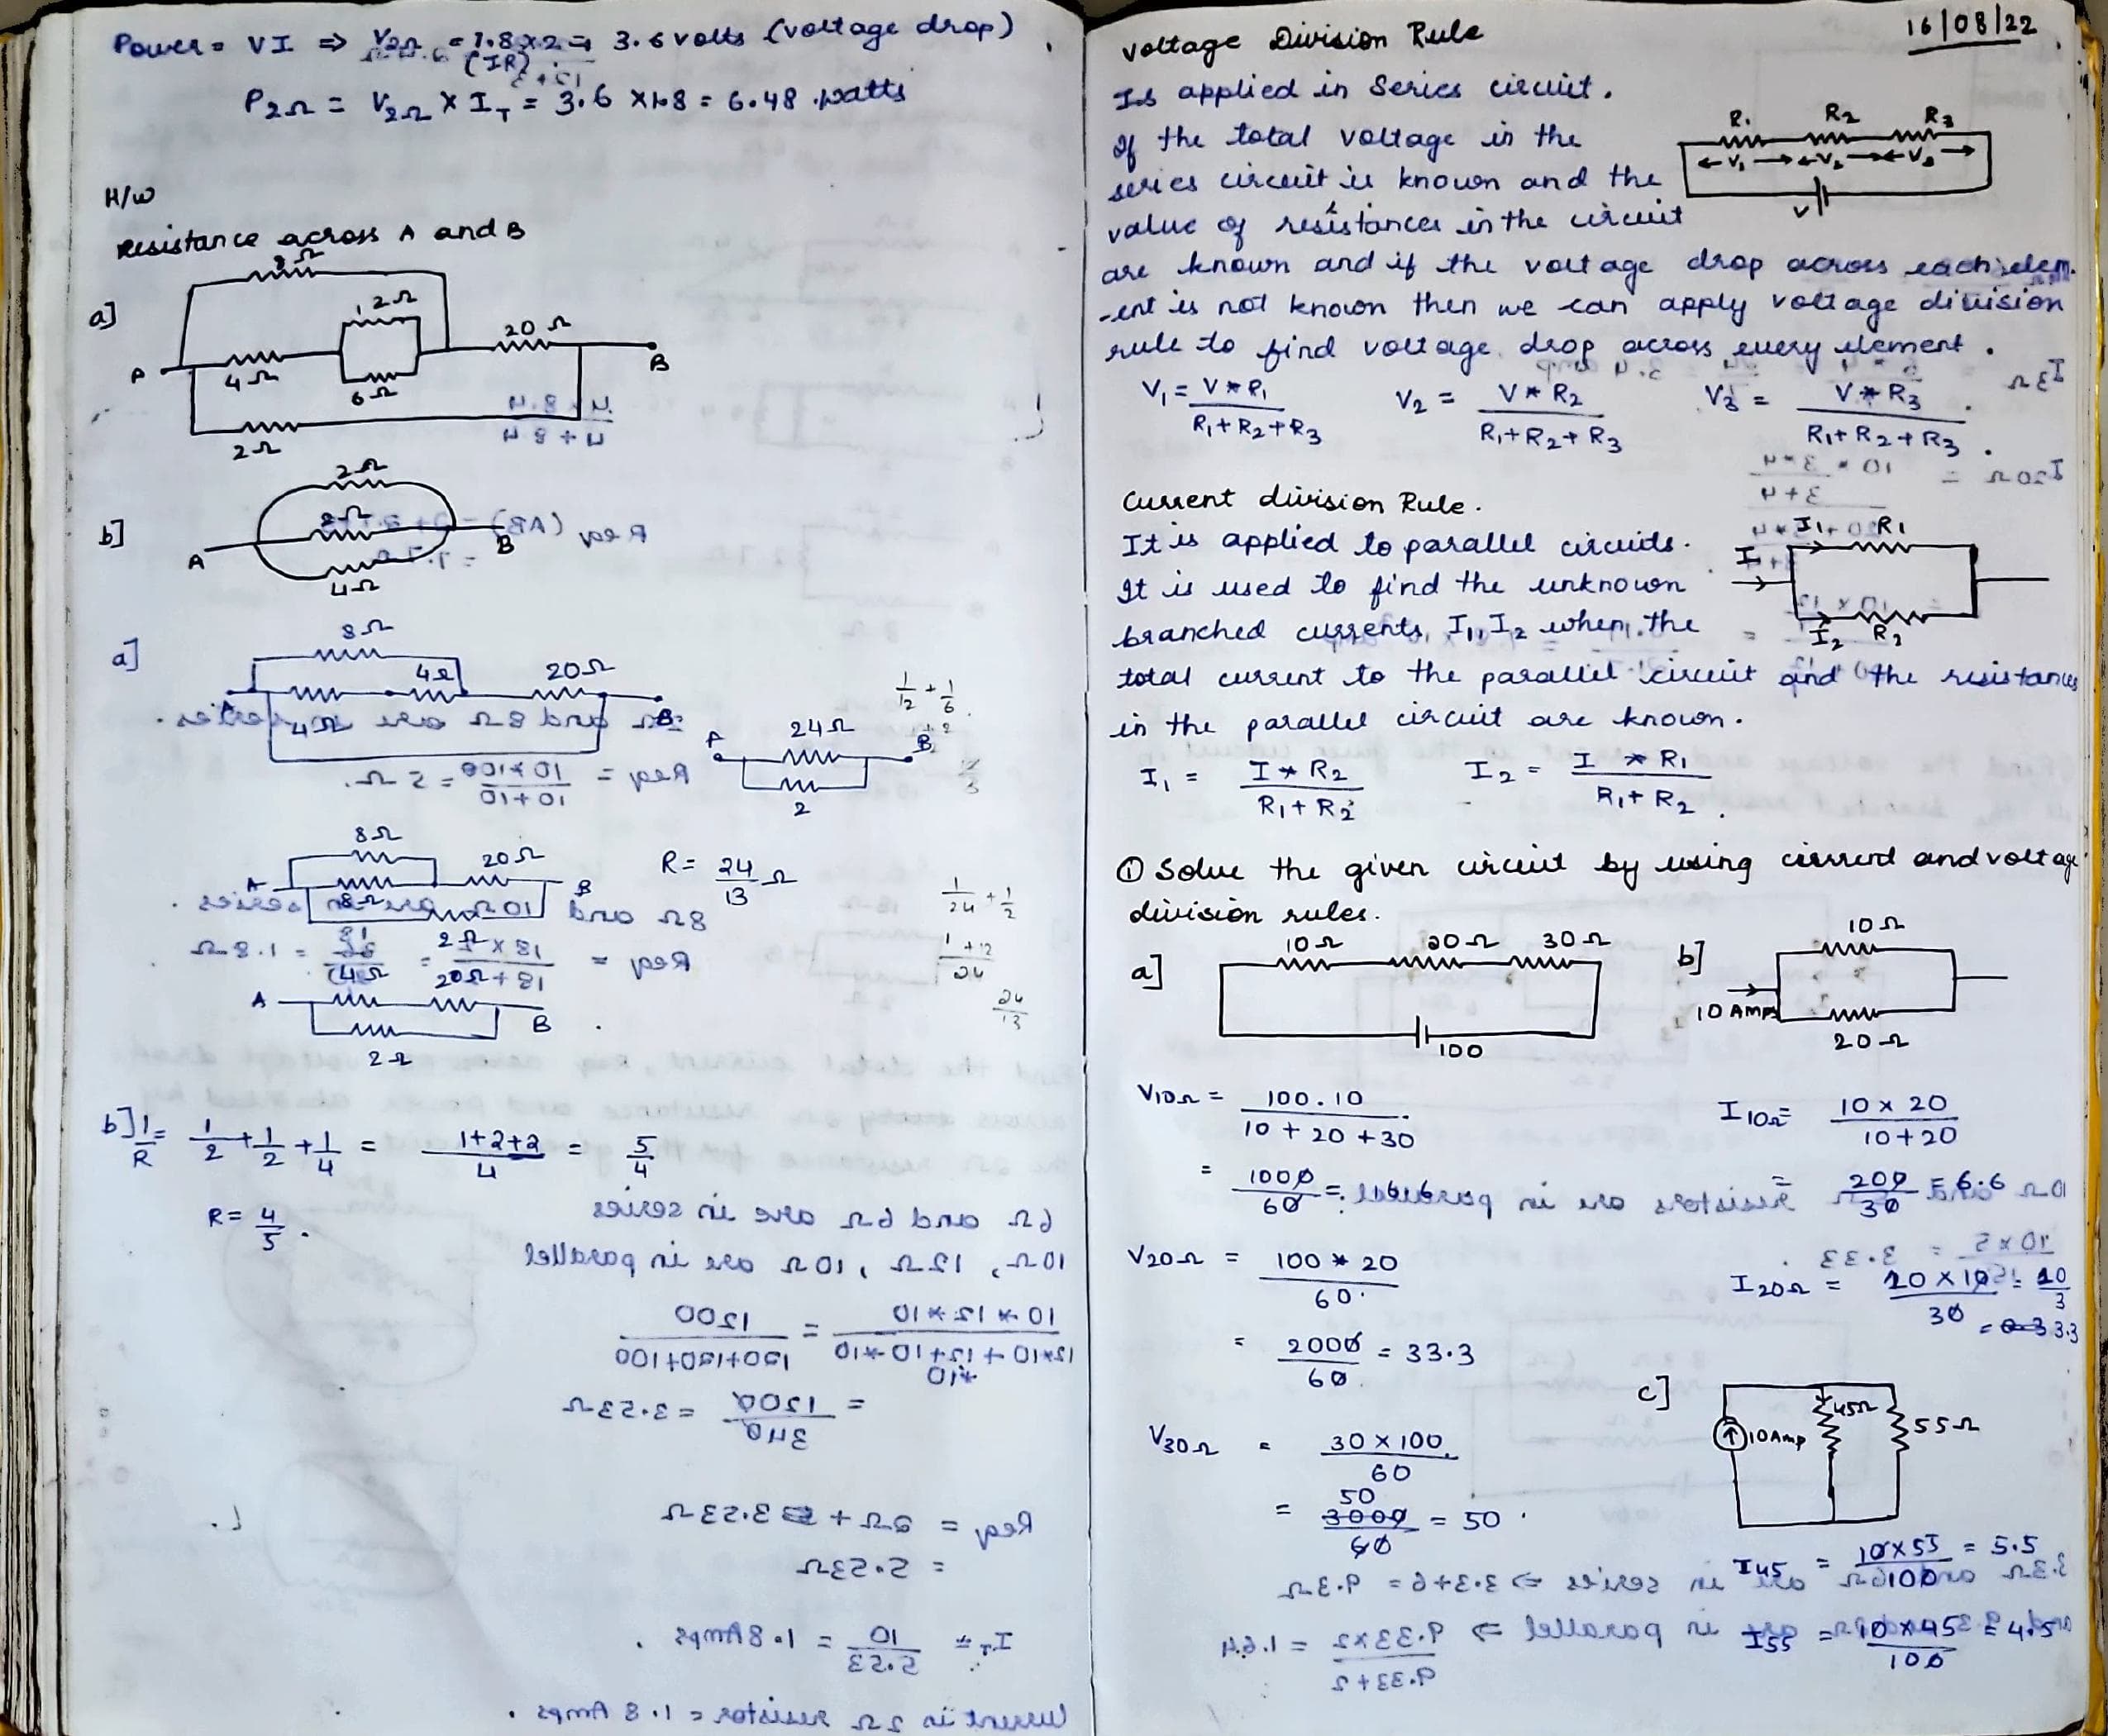 Power = VI ⇒ V2Ω = 1.8 x 2 = 3.6 volts (voltage drop)
(IR)
P2Ω = V2Ω X I_T = 3.6 X 1.8 = 6.48 watts
H/W
Resistance across A and B
a]
8Ω
12Ω
20Ω
A
4Ω
6Ω
B
2Ω
b]
2Ω
2Ω
A
B
4Ω
a]
8Ω
4Ω
20Ω
A
4Ω
B
1/12 + 1/6
24Ω
A
B
2
8Ω
20Ω
A
8Ω
B
R = 24/13 Ω
1/24 + 1/2
1+12/24
24/13
4Ω
20Ω
A
B
2Ω
b] 1/R = 1/2 + 1/2 + 1/4 = 1+2+2/4 = 5/4
R = 4/5 .
16/08/22
Voltage Division Rule
Is applied in Series circuit.
If the total voltage in the
series circuit is known and the
value of resistances in the circuit
are known and if the voltage drop across each elem-
-ent is not known then we can apply voltage division
rule to find voltage drop across every element.
R1 R2 R3
←V1→←V2→←V3→
V
V1 = V*R1 / R1+R2+R3
V2 = V*R2 / R1+R2+R3
V3 = V*R3 / R1+R2+R3 .
Current division Rule.
It is applied to parallel circuits.
It is used to find the unknown
branched currents, I1, I2 when the
total current to the parallel circuit and the resistances
in the parallel circuit are known.
I1 R1
I
I2 R2
I1 = I*R2 / R1+R2
I2 = I*R1 / R1+R2 .
① Solve the given circuit by using current and voltage
division rules.
a]
10Ω 20Ω 30Ω
100
b]
10Ω
10 AMPs
20Ω
V10Ω = 100.10 / 10+20+30
= 1000/60 = 16.6
V20Ω = 100*20 / 60
= 2000/60 = 33.3
V30Ω = 30x100 / 60
50
= 3000/60 = 50 .
I10Ω = 10x20 / 10+20
= 200/30 = 6.6
I20Ω = 10x10/30 = 10/3
= 3.3
c]
10Amp
45Ω
55Ω
I45 = 10x55/100 = 5.5
I55 = 10x45/100 = 4.5